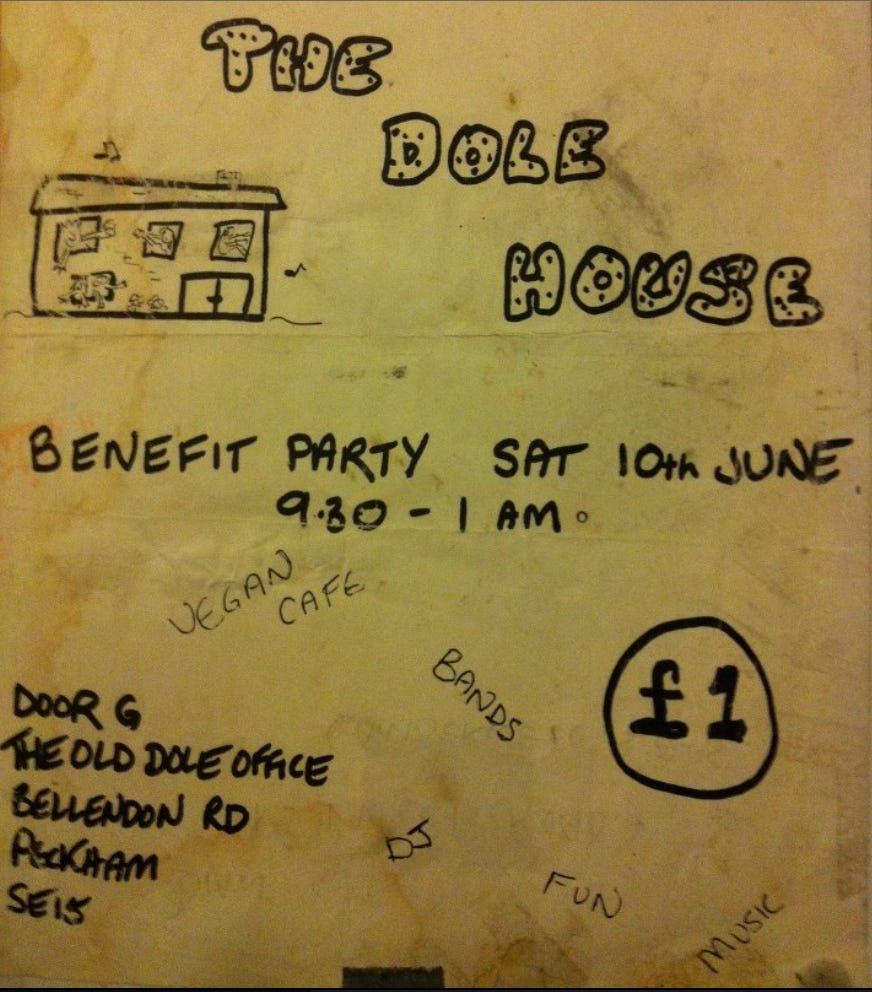 THE
DOLE
HOUSE
BENEFIT PARTY SAT 10th JUNE
9.30 - 1 AM.
VEGAN
CAFE
BANDS
£1
DOOR G
THE OLD DOLE OFFICE
BELLENDON RD
PECKHAM
SE15
DJ
FUN
MUSIC